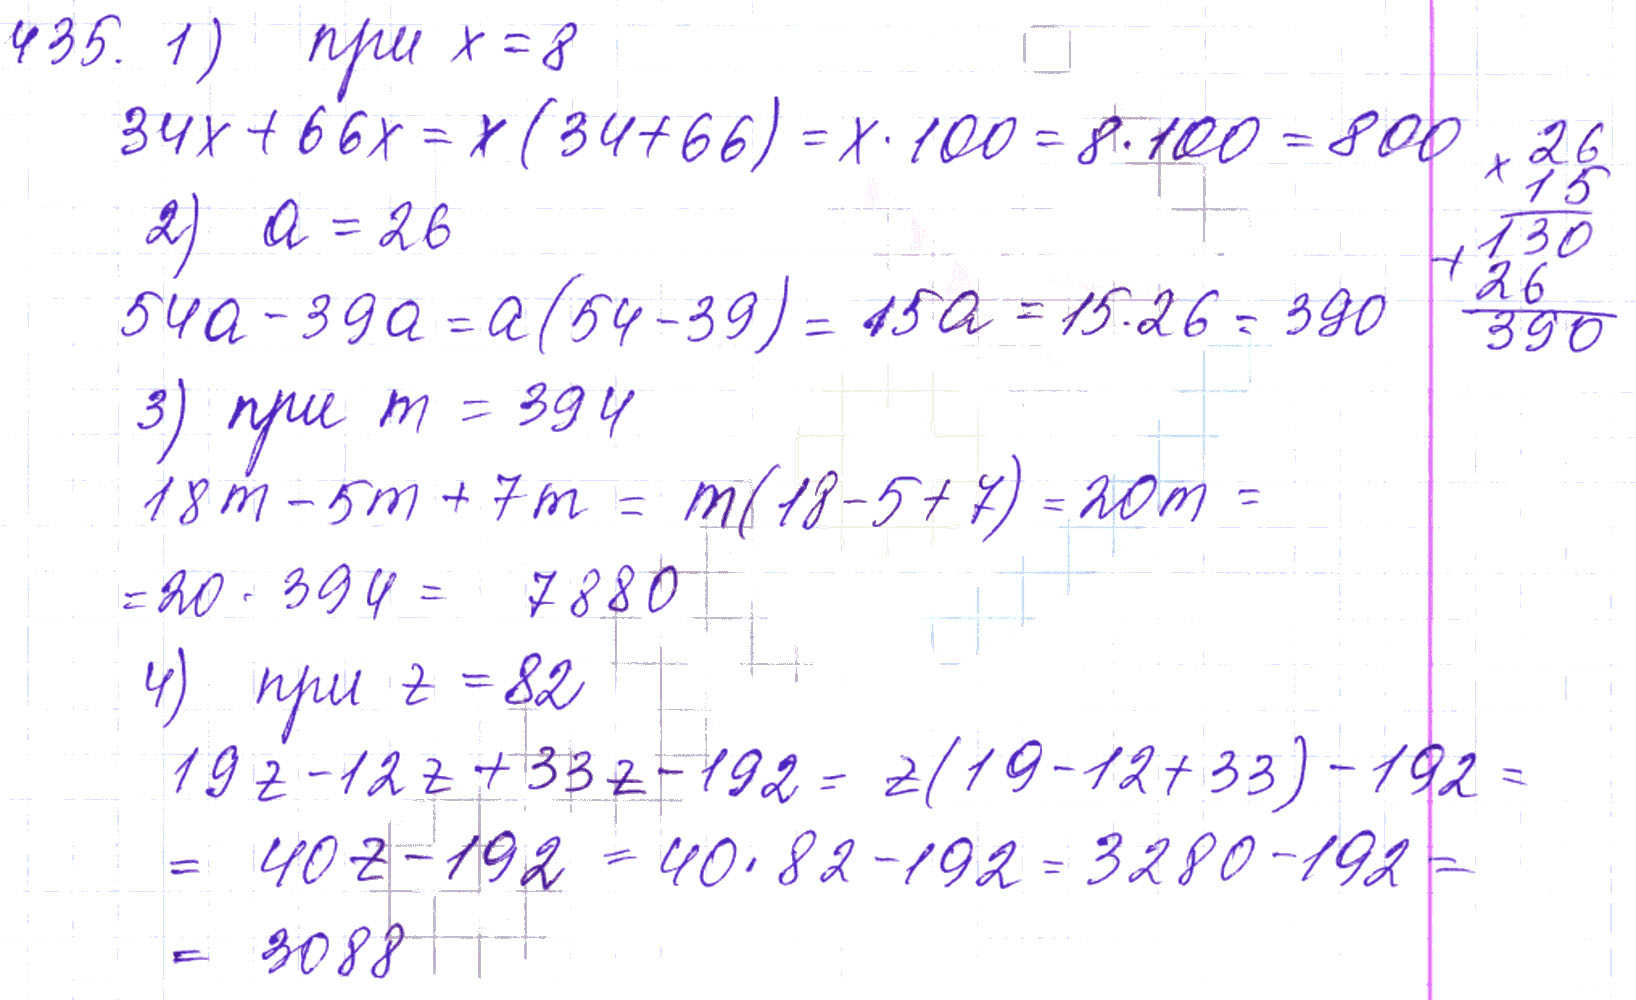 435. 1) при x = 8
34x + 66x = x(34+66) = x · 100 = 8 · 100 = 800
2) a = 26
54a - 39a = a(54-39) = 15a = 15 · 26 = 390
3) при m = 394
18m - 5m + 7m = m(18-5+7) = 20m =
= 20 · 394 = 7880
4) при z = 82
19z - 12z + 33z - 192 = z(19-12+33) - 192 =
= 40z - 192 = 40 · 82 - 192 = 3280 - 192 =
= 3088
× 26
15
130
+ 26
390